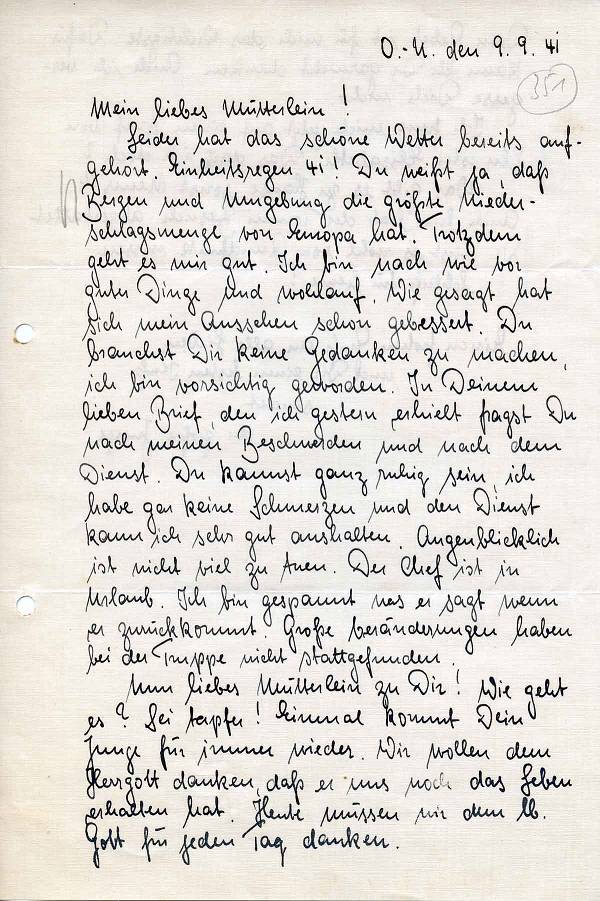 O.-U. den 9.9.41
351
Mein liebes Mütterlein!
Leider hat das schöne Wetter bereits auf-
gehört. Einheitsregen 41! Du weißt ja, daß
Bergen und Umgebung die größte Nieder-
schlagsmenge von Europa hat. Trotzdem
geht es mir gut. Ich bin nach wie vor
guter Dinge und wohlauf. Wie gesagt hat
sich mein Aussehen schon gebessert. Du
brauchst Dir keine Gedanken zu machen,
ich bin vorsichtig geworden. In Deinem
lieben Brief, den ich gestern erhielt fragst Du
nach meinen Beschwerden und nach dem
Dienst. Du kannst ganz ruhig sein, ich
habe gar keine Schmerzen und den Dienst
kann ich sehr gut aushalten. Augenblicklich
ist nicht viel zu tuen. Der Chef ist in
Urlaub. Ich bin gespannt was er sagt wenn
er zurückkommt. Große Veränderungen haben
bei der Truppe nicht stattgefunden.
Nun liebes Mütterlein zu Dir! Wie geht
es? Sei tapfer! Einmal kommt Dein
Junge für immer wieder. Wir wollen dem
Herrgott danken, daß er uns noch das Leben
erhalten hat. Heute müssen wir dem lb.
Gott für jeden Tag danken.